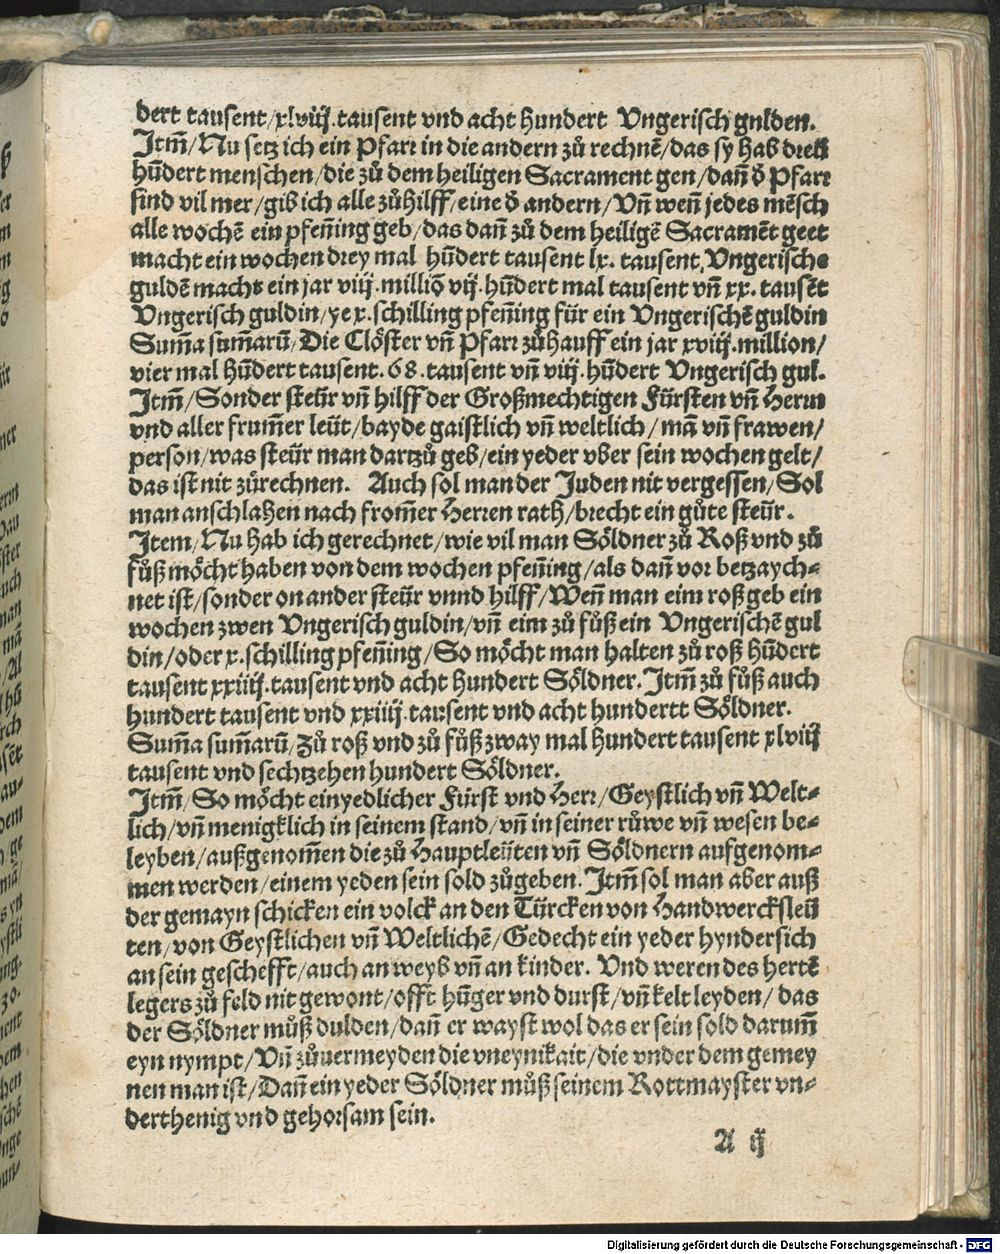 dert tausent/xlviij.tausent vnd acht hundert Vngerisch gnlden.
Jtm̃/Nu setz ich ein Pfarr in die andern zů rechnẽ/das sy hab dreü
hũdert menschen/die zů dem heiligen Sacrament gen/dañ d̕ Pfarr
sind vil mer/gib ich alle zůhilff/eine d̕ andern/Vñ weñ jedes mẽsch
alle wochẽ ein pfeñing geb/das dañ zů dem heiligẽ Sacramẽt geet
macht ein wochen drey mal hũdert tausent lx. tausent, Vngerische
guldẽ macht ein jar viij.milliõ vij.hũdert mal tausent vñ xx.tausẽt
Vngerisch guldin/ye x.schilling pfeñing für ein Vngerischẽ guldin
Sum̃a sum̃arũ/Die Clöster vñ Pfarr zůhauff ein jar xviij.million/
vier mal hũdert tausent.68.tausent vñ viij.hũdert Vngerisch gul.
Jtm̃/Sonder steür vñ hilff der Großmechtigen Fürsten vñ Herrn
vnd aller frum̃er leüt/bayde gaistlich vñ weltlich/mã vñ frawen/
person/was steür man dartzů geb/ein yeder vber sein wochen gelt/
das ist nit zůrechnen. Auch sol man der Juden nit vergessen/Sol
man anschlahen nach from̃er Herren rath/brecht ein gůte steür.
Jtem/Nu hab ich gerechnet/wie vil man Söldner zů Roß vnd zů
fůß möcht haben von dem wochen pfeñing/als dañ vor betzaych⸗
net ist/sonder on ander steür vnnd hilff/Weñ man eim roß geb ein
wochen zwen Vngerisch guldin/vñ eim zů fůß ein Vngerischẽ gul
din/oder x.schilling pfeñing/So möcht man halten zů roß hũdert
tausent xxiiij.tausent vnd acht hundert Söldner. Jtm̃ zů fůß auch
hundert tausent vnd xxiiij.tausent vnd acht hundertt Söldner.
Sum̃a sum̃arũ/Zů roß vnd zů fůß zway mal hundert tausent xlviij
tausent vnd sechtzehen hundert Söldner.
Jtm̃/So möcht ein yedlicher Fürst vnd Herr/Geystlich vñ Welt⸗
lich/vñ menigklich in seinem stand/vñ in seiner růwe vñ wesen be⸗
leyben/außgenom̃en die zů Hauptleüten vñ Söldnern aufgenom⸗
men werden/einem yeden sein sold zůgeben. Jtm̃ sol man aber auß
der gemayn schicken ein volck an den Türcken von Handwercksleü
ten/von Geystlichen vñ Weltlichẽ/Gedecht ein yeder hyndersich
an sein geschefft/auch an weyb vñ an kinder. Vnd weren des hertẽ
legers zů feld nit gewont/offt hũger vnd durst/vñ kelt leyden/das
der Söldner můß dulden/dañ er wayst wol das er sein sold darum̃
eyn nympt/Vñ zůuermeyden die vneynikait/die vnder dem gemey
nen man ist/Dañ ein yeder Söldner můß seinem Rottmayster vn⸗
derthenig vnd gehorsam sein.
A ij
Digitalisierung gefördert durch die Deutsche Forschungsgemeinschaft - DFG